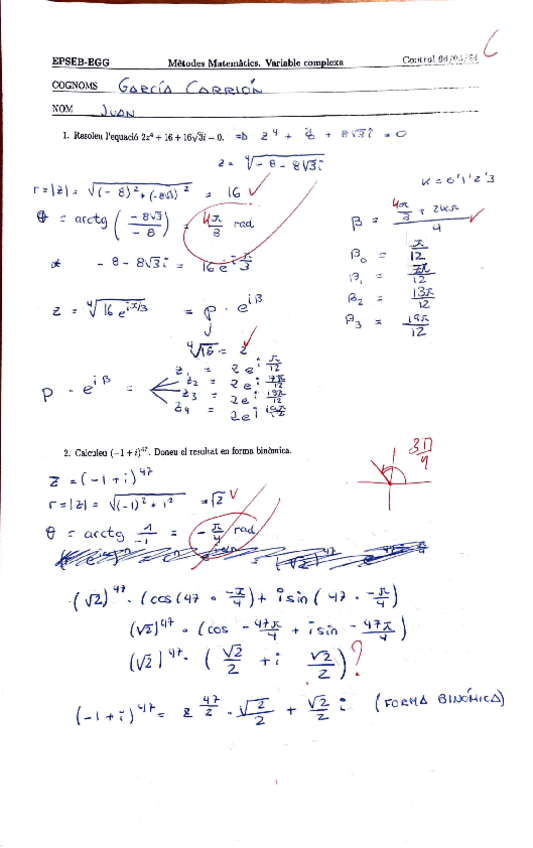 EPSEB-EGG Mètodes Matemàtics. Variable complexa Control
COGNOMS GARCÍA CARRIÓN
NOM JUAN
1. Resoleu l'equació 2z⁴ + 16 + 16√3i = 0. => z⁴ + 8 + 8√3i = 0
z = ⁴√-8 - 8√3i
K = 0'1'2'3
r = |z| = √(-8)² + (-8√3)² = 16
θ = arctg (-8√3 / -8) = 4π/3 rad
β = (4π/3 + 2kπ) / 4
* -8 - 8√3i = 16e^(i π/3)
β₀ = π/12
β₁ = 7π/12
β₂ = 13π/12
β₃ = 19π/12
z = ⁴√16 e^(iπ/3) = ρ · e^(iβ)
⁴√16 = 2
ρ · e^(iβ) =
z₁ = 2e^(i π/12)
z₂ = 2e^(i 7π/12)
z₃ = 2e^(i 13π/12)
z₄ = 2e^(i 19π/12)
2. Calculeu (-1 + i)⁴⁷. Doneu el resultat en forma binòmica.
3π/4
z = (-1 + i)⁴⁷
r = |z| = √(-1)² + 1² = √2
θ = arctg 1/-1 = -π/4 rad
(√2)⁴⁷ · (cos(47 · -π/4) + i sin(47 · -π/4)
(√2)⁴⁷ · (cos -47π/4 + i sin -47π/4)
(√2)⁴⁷ · (√2/2 + i √2/2) ?
(-1 + i)⁴⁷ = 2^(47/2) · √2/2 + √2/2 i (FORMA BINÓMICA)